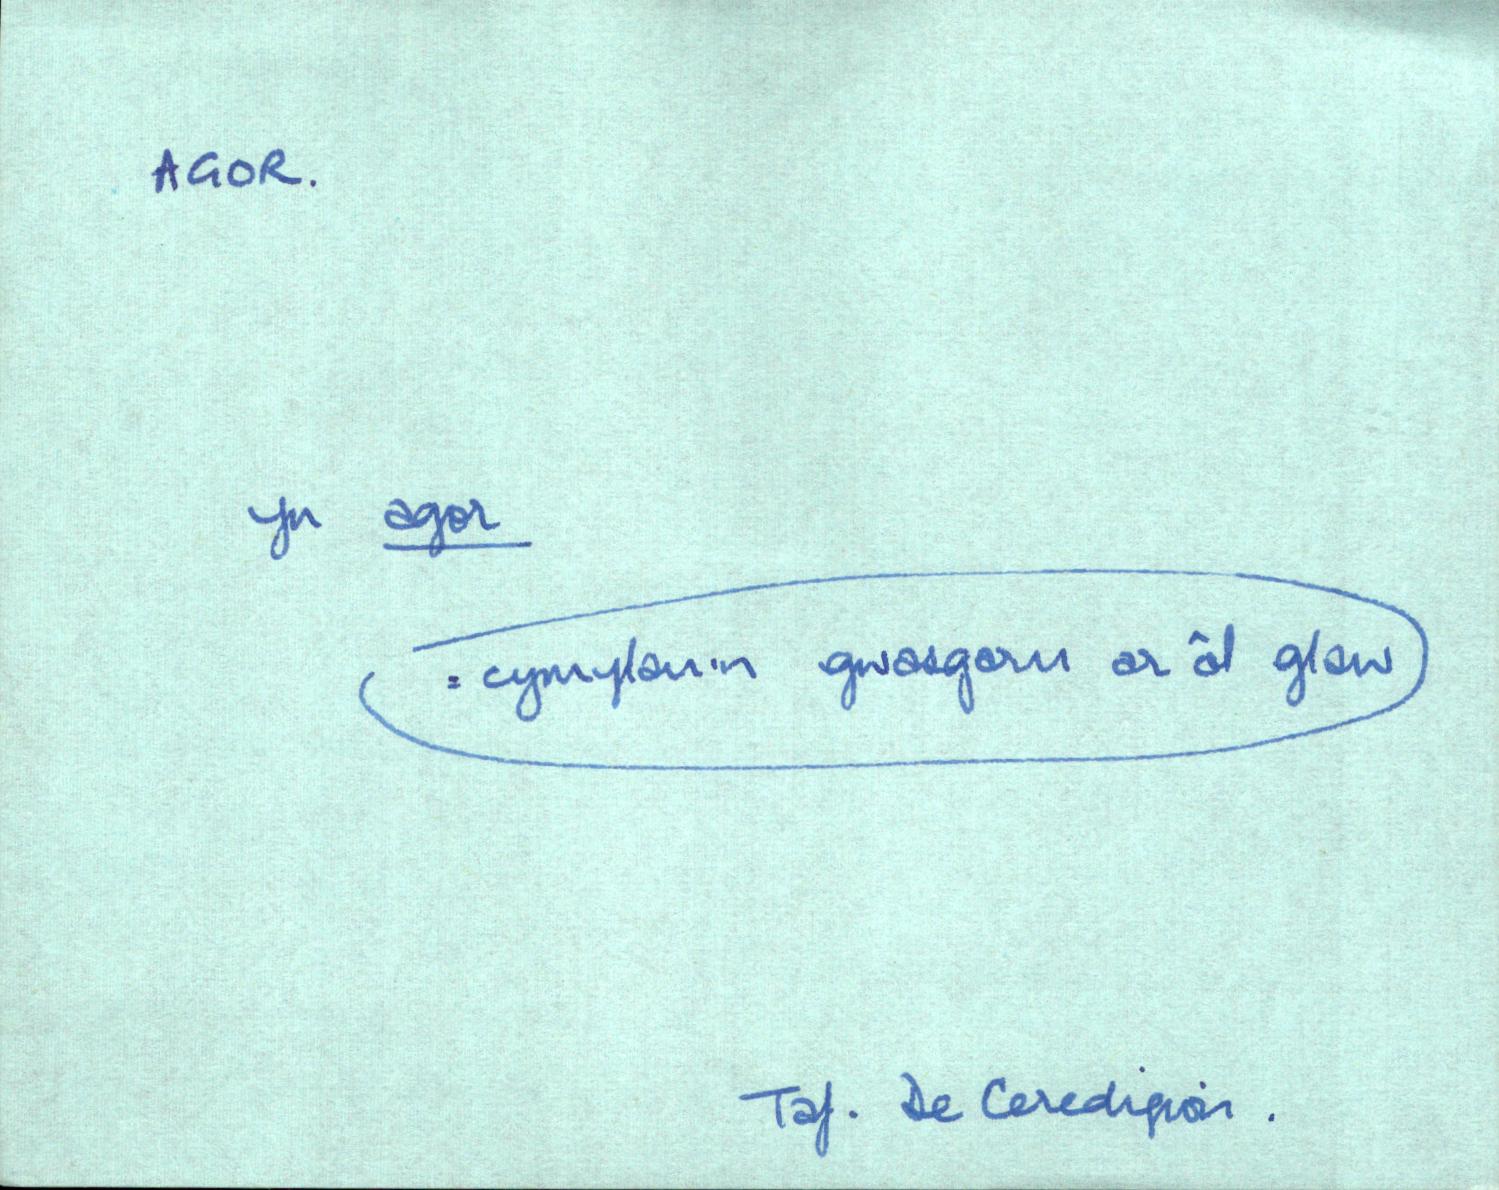 AGOR.
yn agor
= cymylau'n gwasgaru ar ôl glaw
Taf. De Ceredigion.